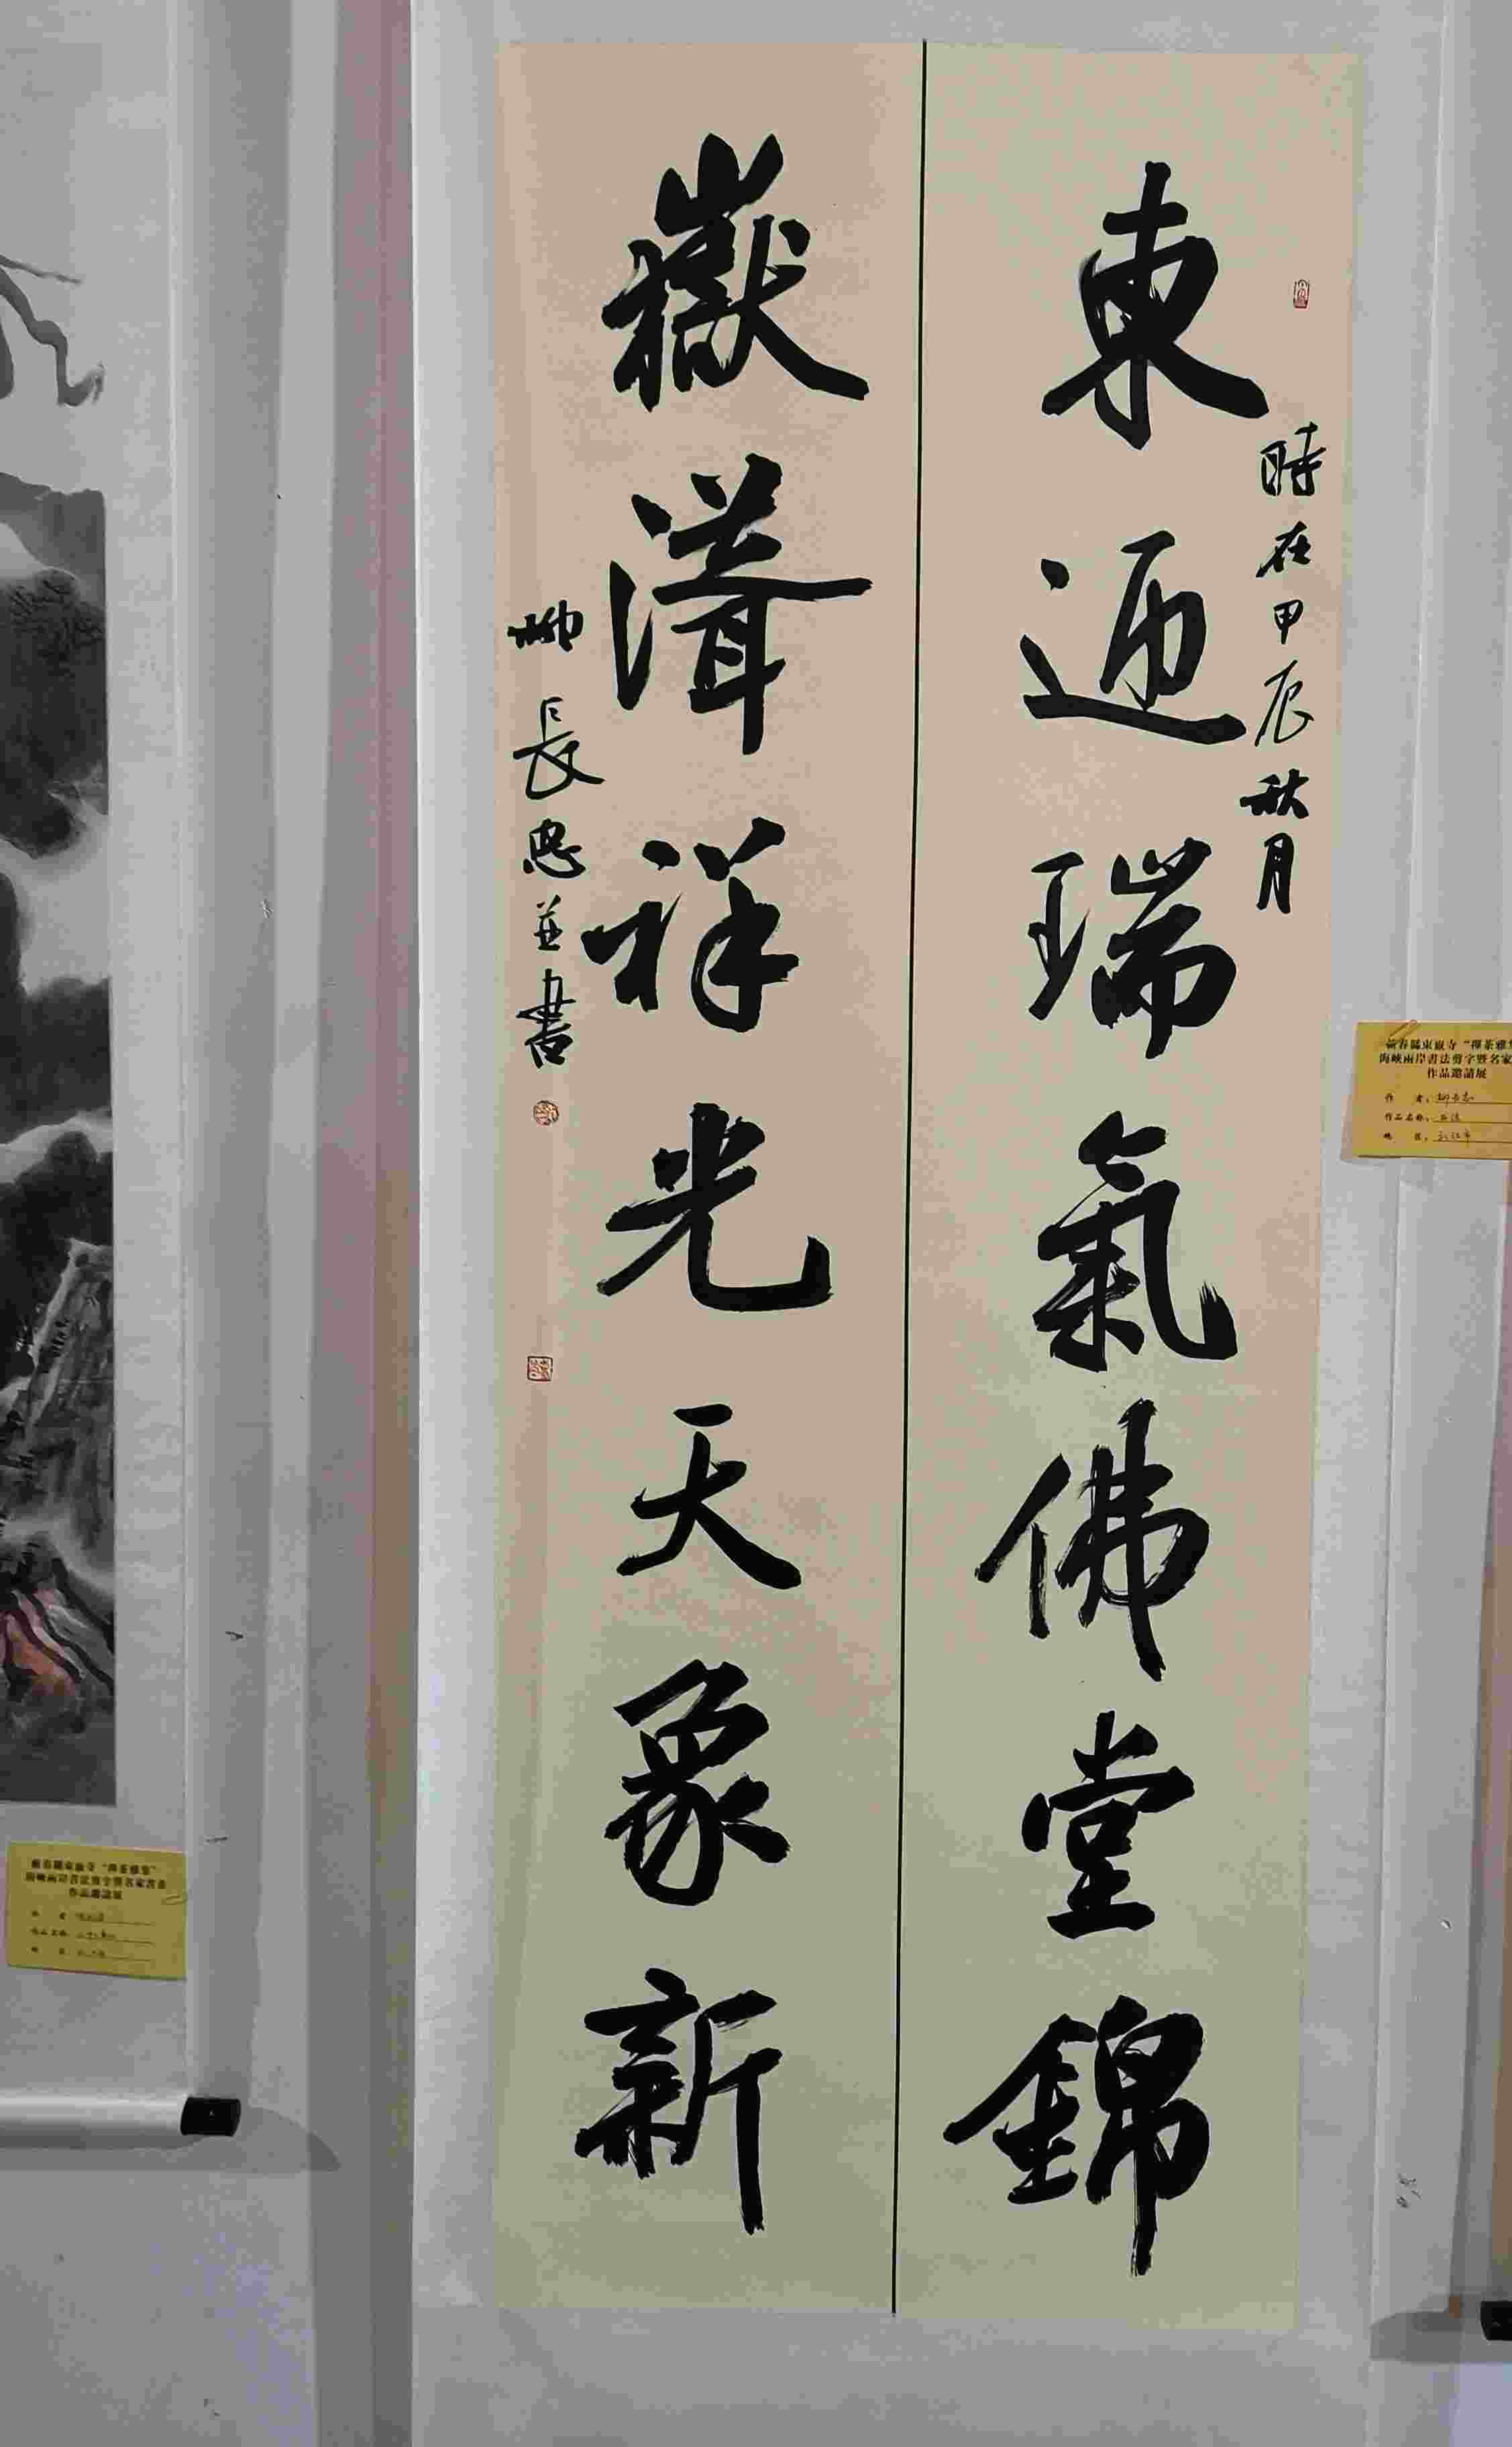 東迎瑞氣佛堂錦
時在甲辰秋月
嶽聳祥光天象新
柳長忠並書
蘄春縣東嶽寺“禪茶雅集
海峽兩岸書法剪字暨名家
作品邀請展
作 者：柳長忠
作品名称：书法
地 區：
蘄春縣東嶽寺“禪茶雅集”
海峽兩岸書法剪字暨名家書畫
作品邀請展
作 者：
作品名称：
地 區：